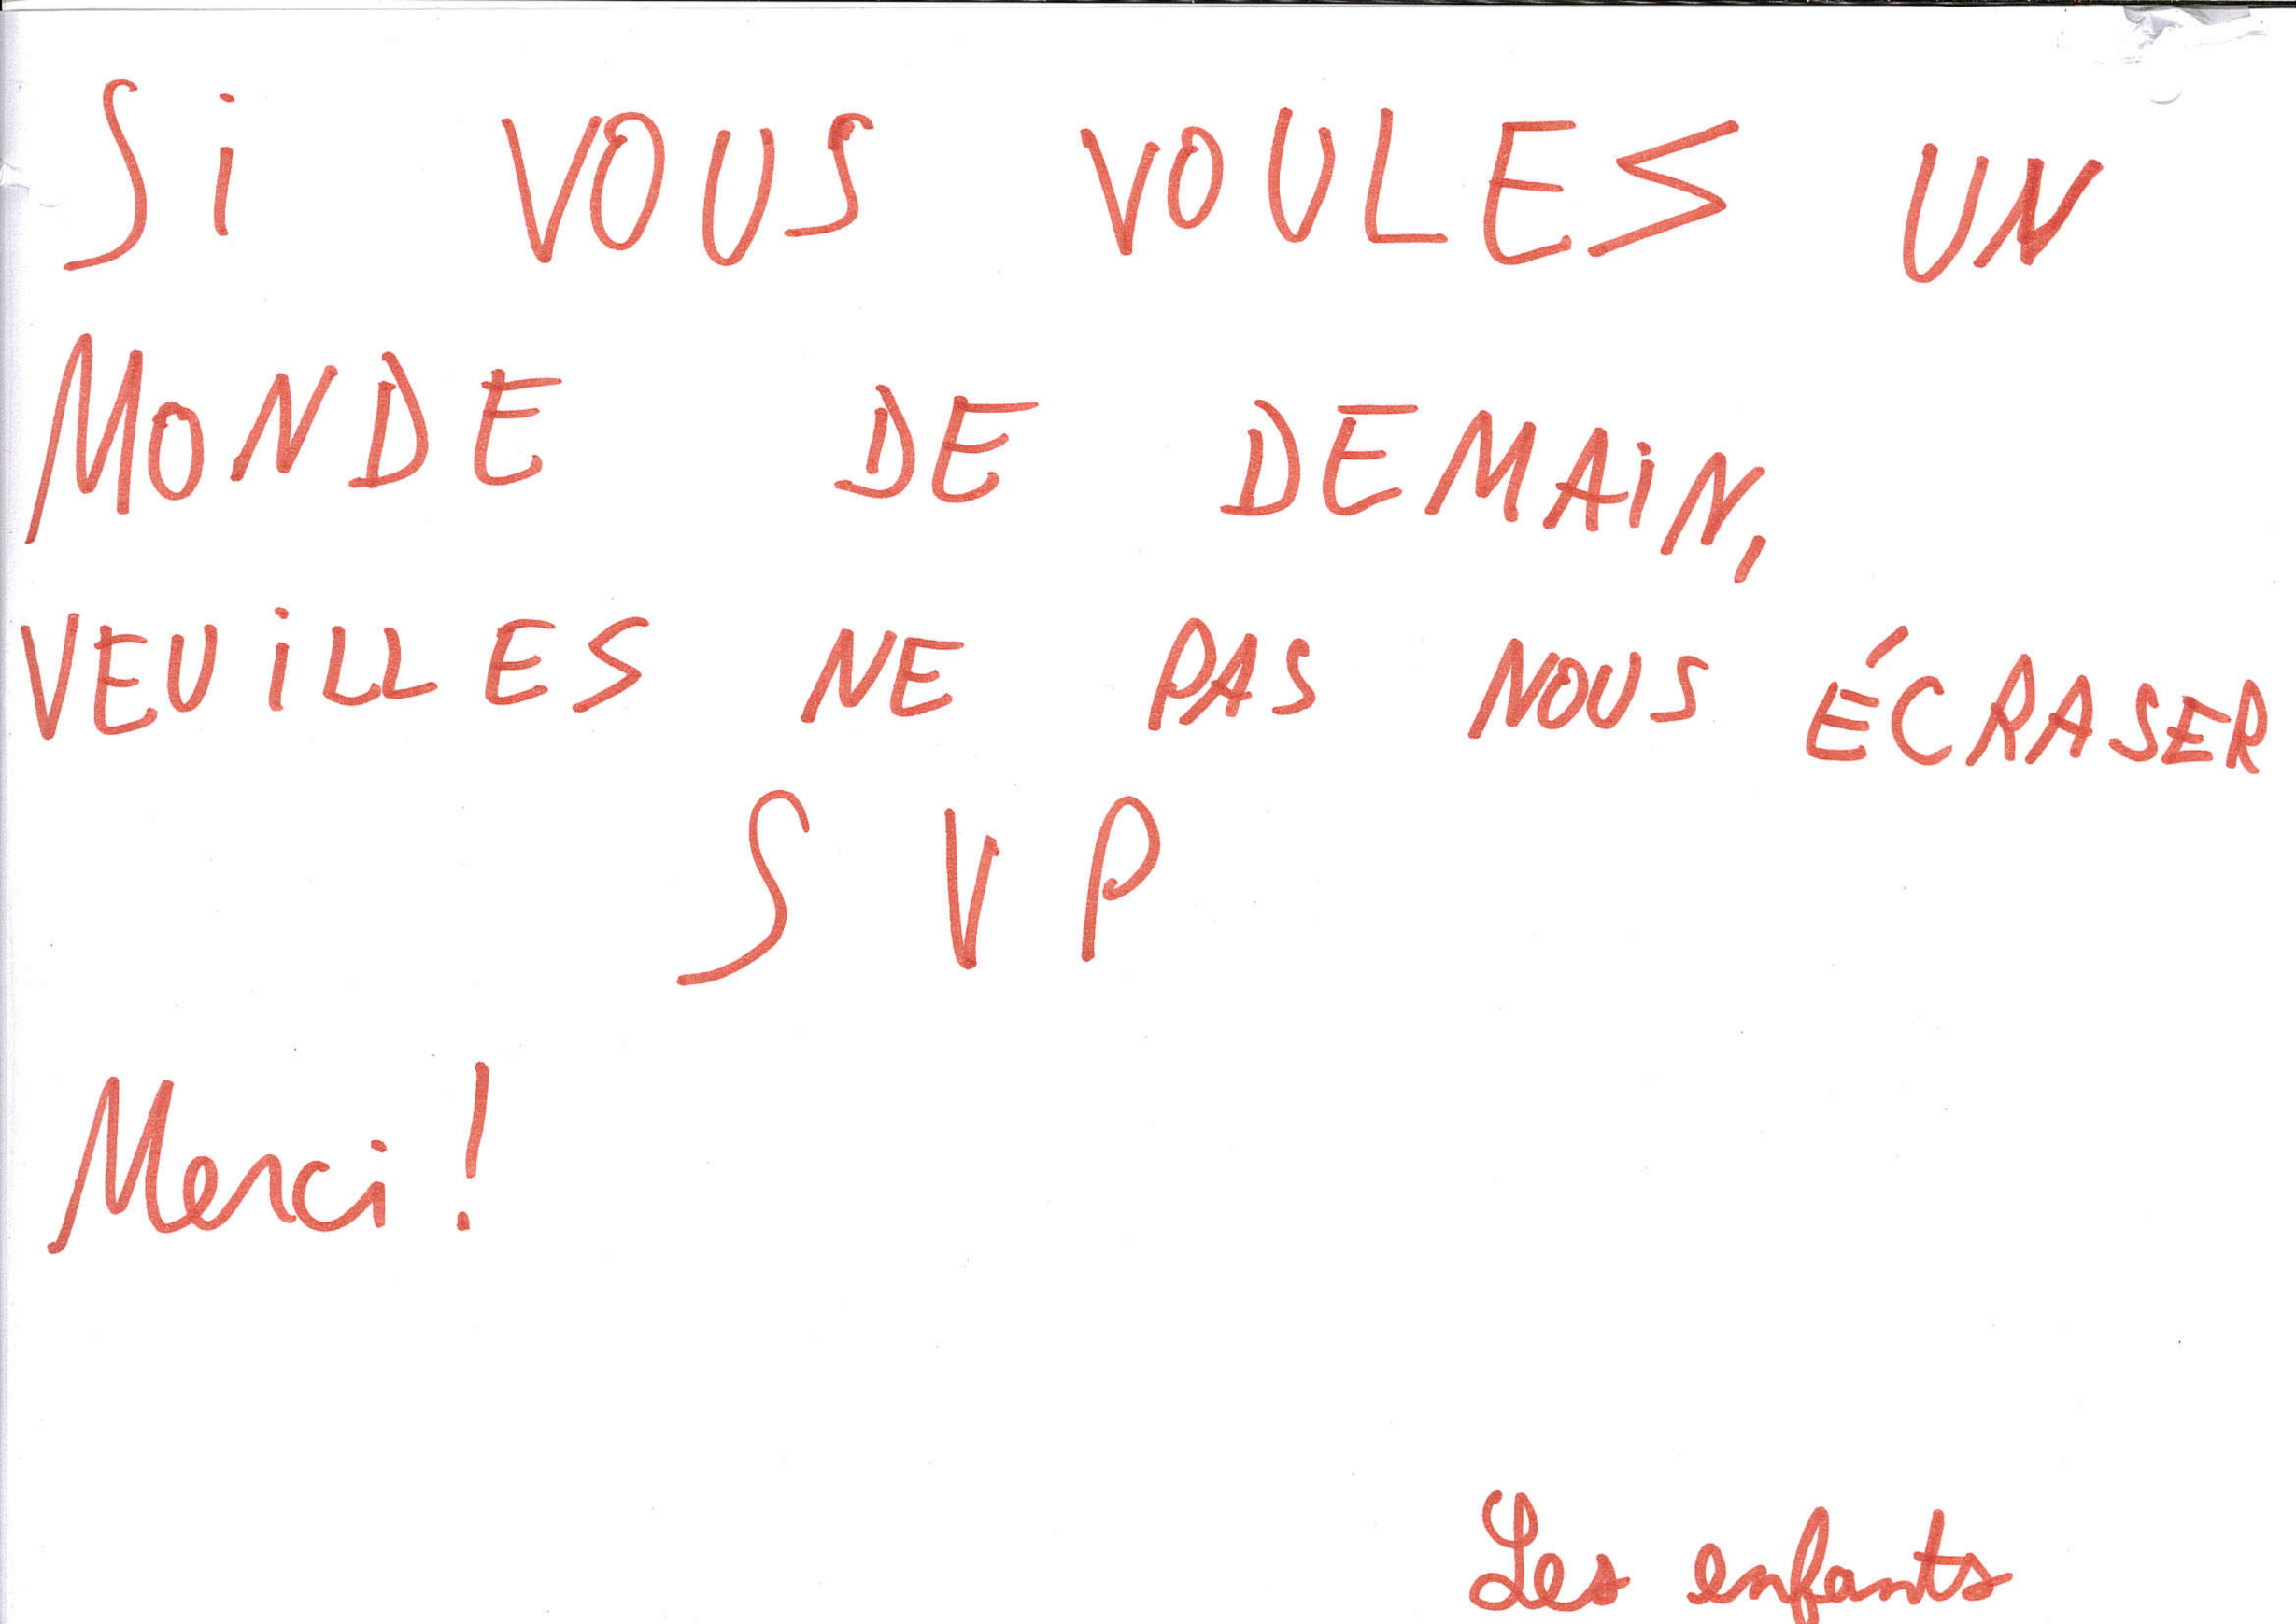 Si VOUS VOULES UN
MONDE DE DEMAiN,
VEUiLLES NE PAS NOUS ÉCRASER
SVP
Merci !
Les enfants